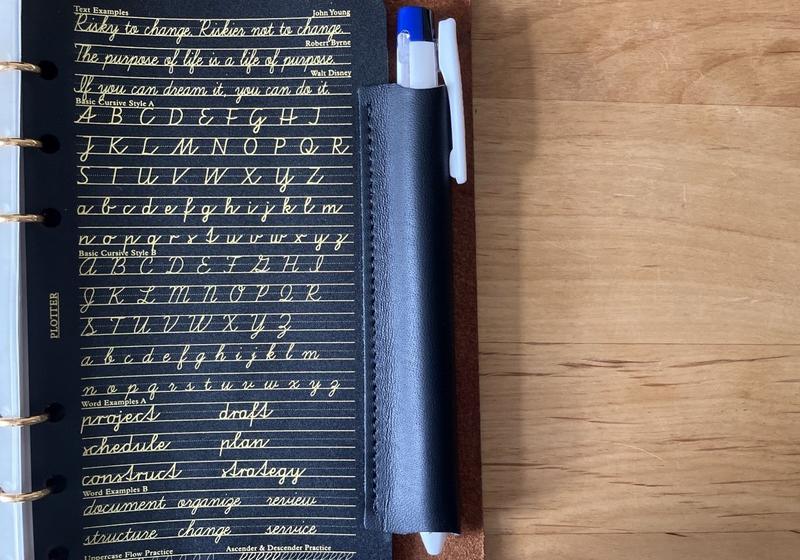 Text Examples John Young
Risky to change. Riskier not to change.
Robert Byrne
The purpose of life is a life of purpose.
Walt Disney
If you can dream it, you can do it.
Basic Cursive Style A
A B C D E F G H I
J K L M N O P Q R
S T U V W X Y Z
a b c d e f g h i j k l m
n o p q r s t u v w x y z
Basic Cursive Style B
A B C D E F G H I
J K L M N O P Q R
S T U V W X Y Z
a b c d e f g h i j k l m
n o p q r s t u v w x y z
Word Examples A
project draft
schedule plan
construct strategy
Word Examples B
document organize review
structure change service
Uppercase Flow Practice Ascender & Descender Practice
PLOTTER